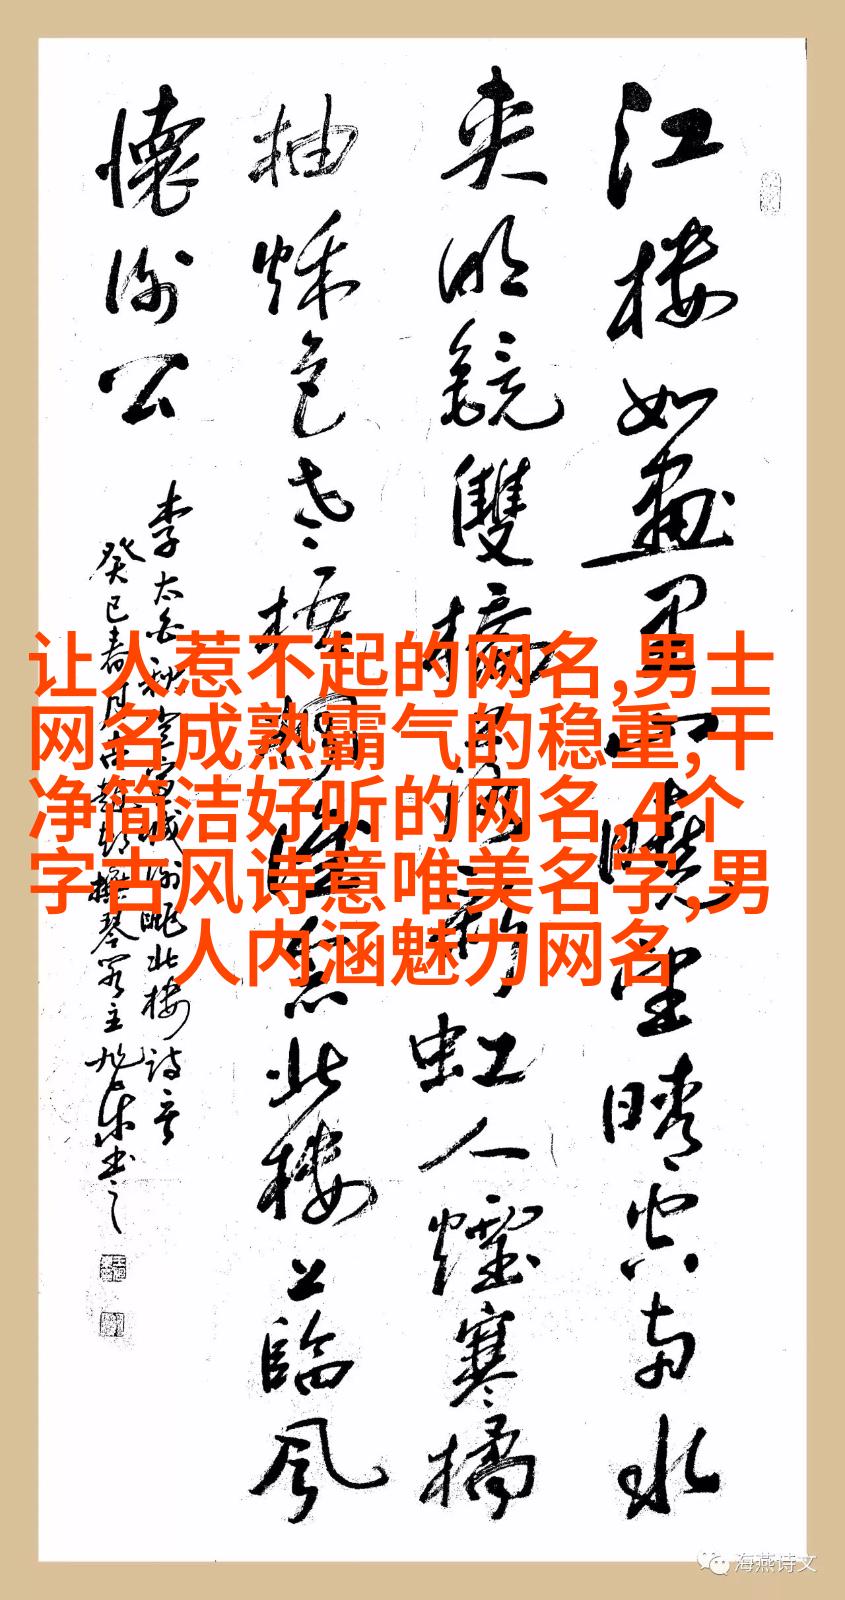 江樓如畫里山曉望晴空兩水
夾明鏡雙橋落彩虹人煙寒橘
柚秋色老梧桐誰念北樓上臨風
懷謝公
李太白秋登宣城謝朓北樓詩意
癸巳春月古琴主書之
让人惹不起的网名,男士
网名成熟霸气的稳重,干
净简洁好听的网名,4个
字古风诗意唯美名字,男
人内涵魅力网名
海燕诗文